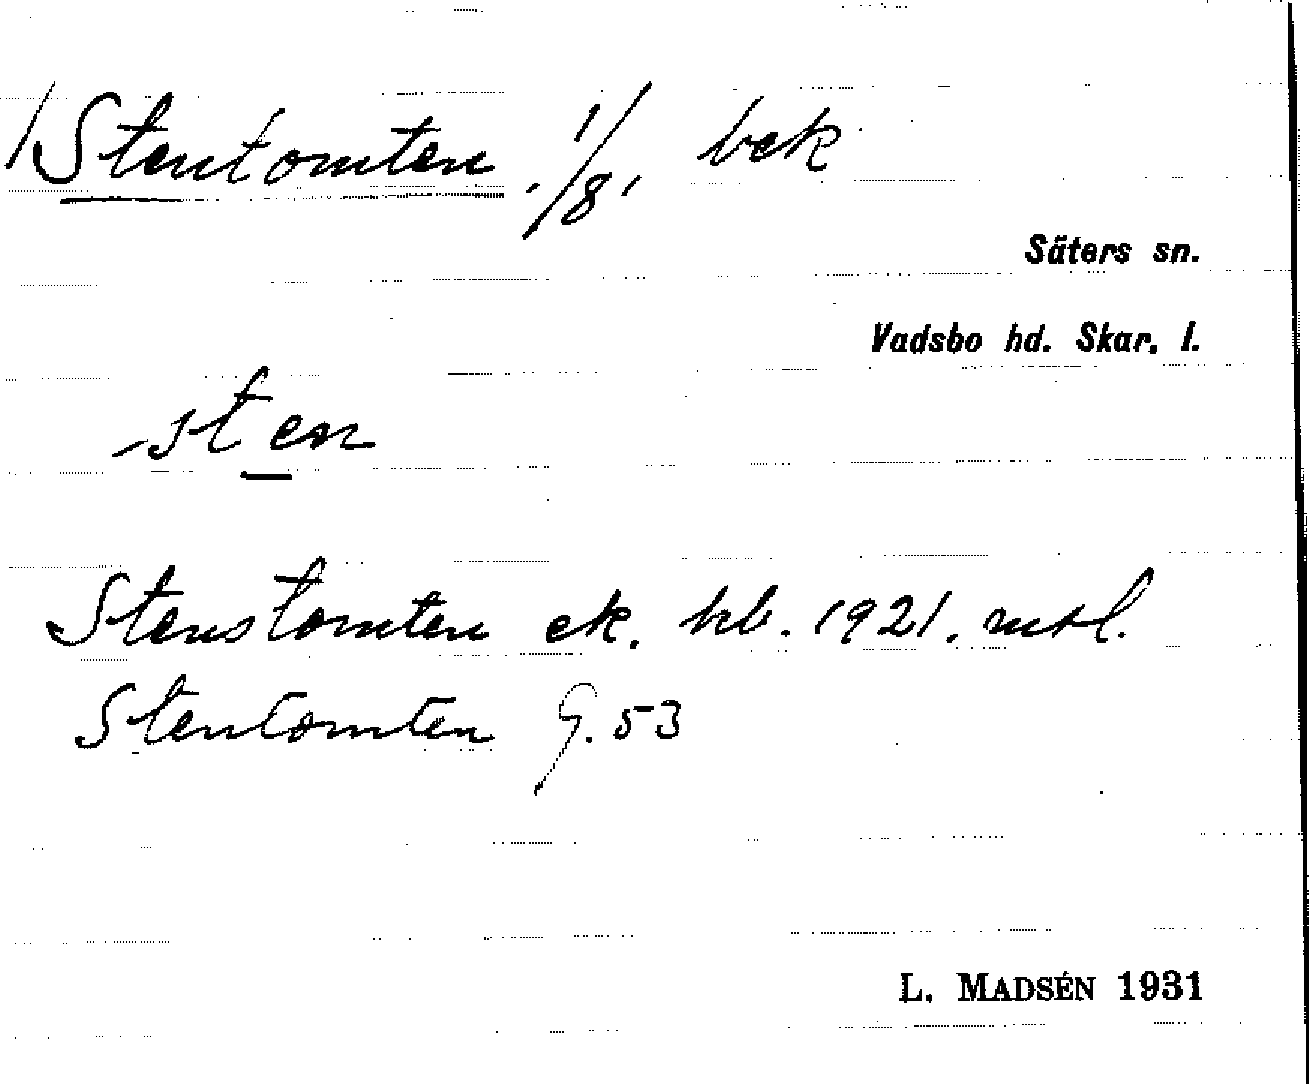 /Stentomten, 1/8, bek
Säters sn.
Vadsbo hd. Skar. l.
-sten
Stenstomten ek. kb. 1921. mtl.
Stentomten G. 53
L. MADSÉN 1931